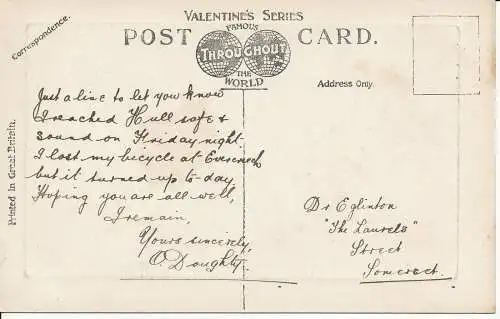 VALENTINE'S SERIES
FAMOUS
POST CARD.
THROUGHOUT
THE
WORLD
Correspondence.
Address Only.
Printed in Great Britain.
Just a line to let you know
I reached Hull safe &
sound on Friday night.
I lost my bicycle at Evercreech
but it turned up to-day.
Hoping you are all well,
I remain,
Yours sincerely,
O. Doughty.
Dr Eglinton
"The Laurels"
Street
Somerset.